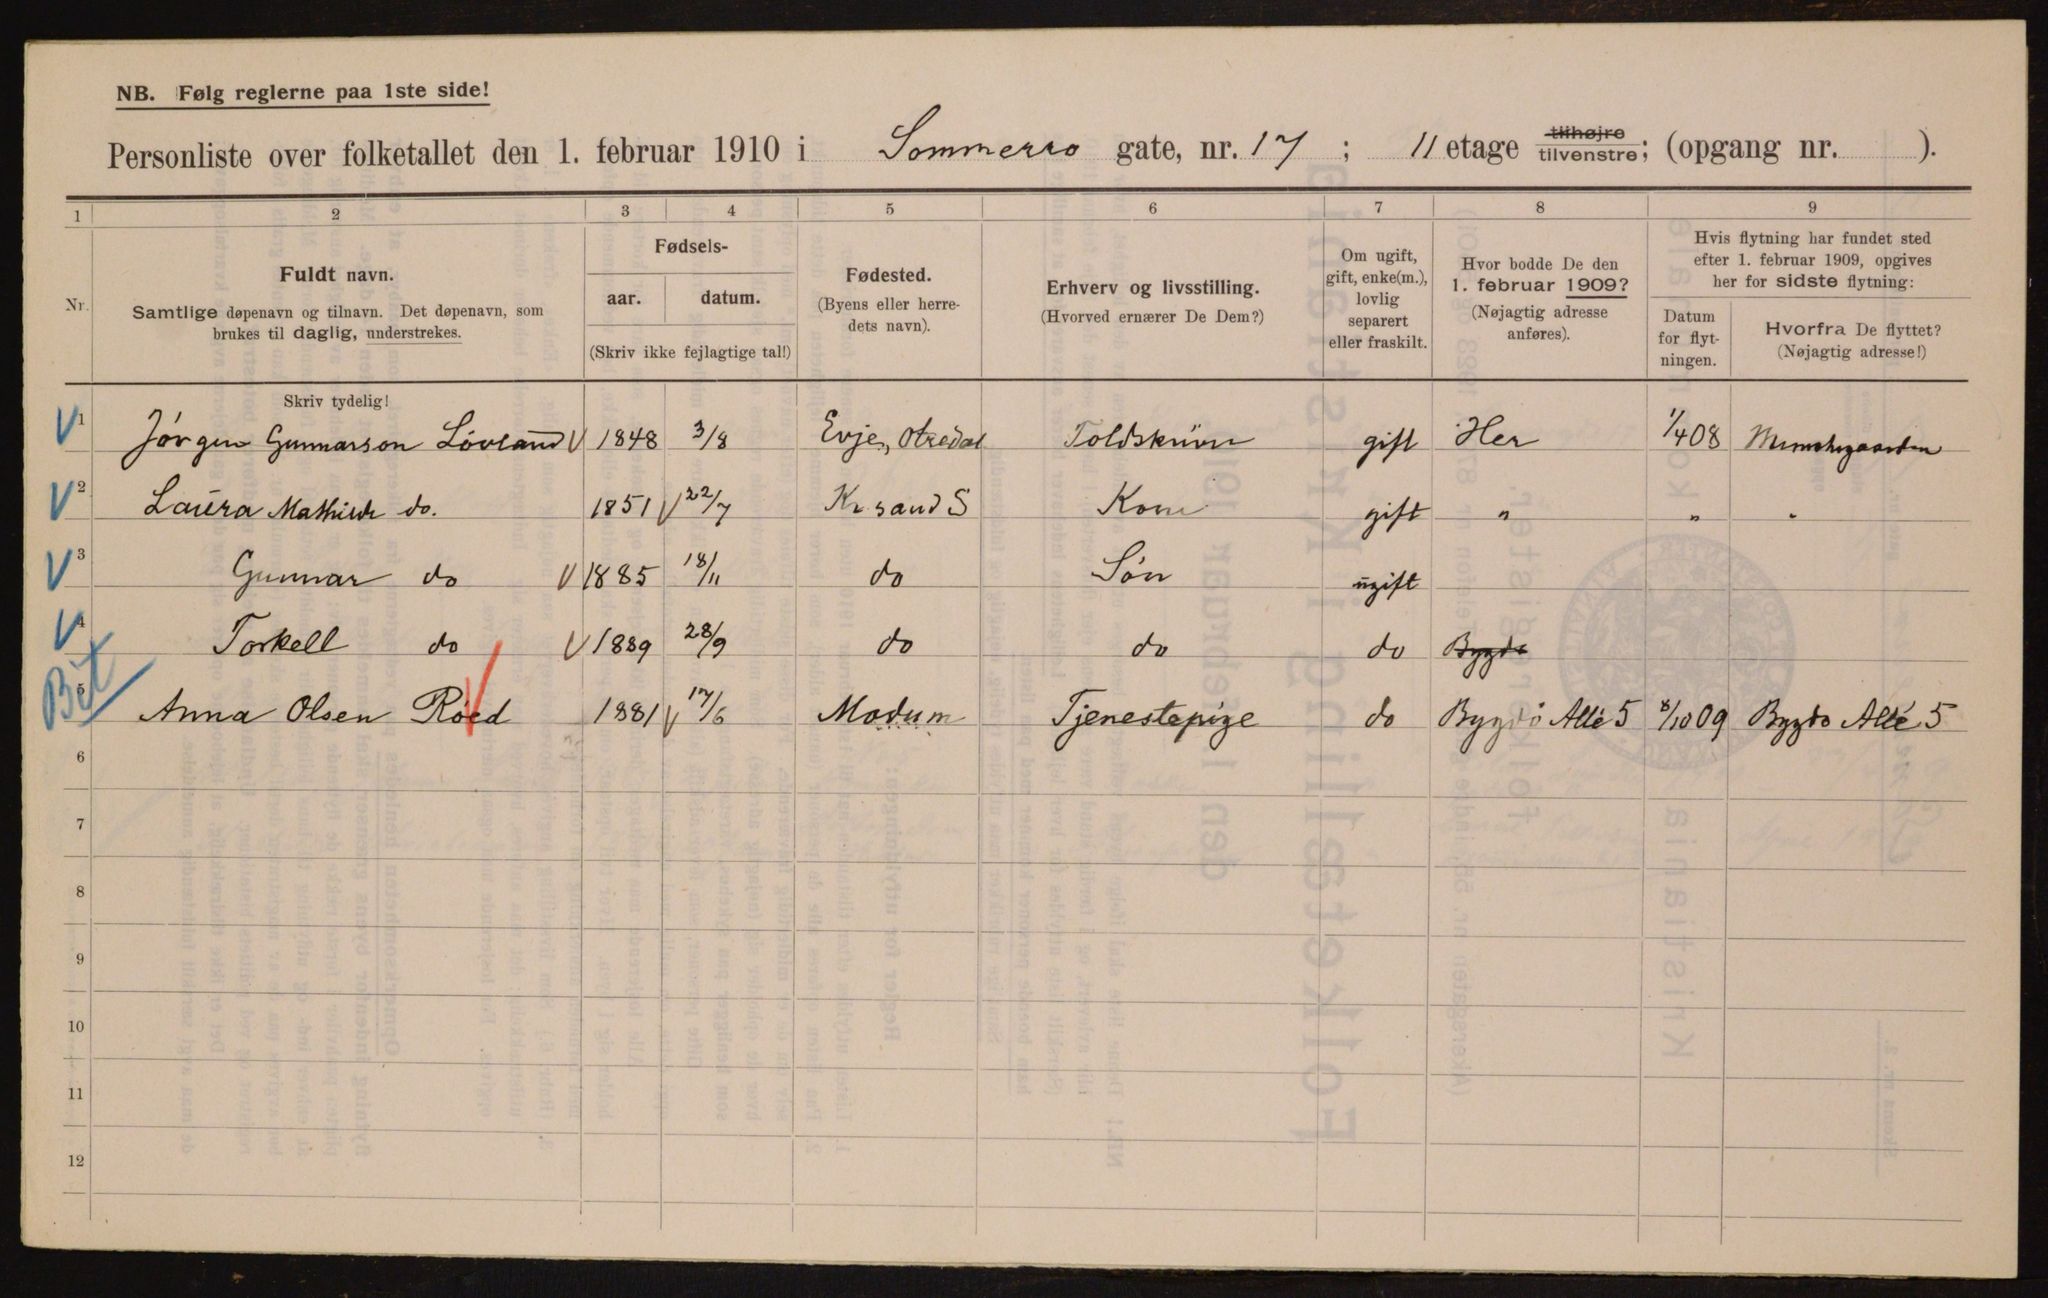 NB. Følg reglerne paa 1ste side!
Personliste over folketallet den 1. februar 1910 i Sommerro gate, nr. 17 ; 11 etage tilhøjre tilvenstre; (opgang nr. ).
1 2 3 4 5 6 7 8 9
Nr.
Fuldt navn.
Samtlige døpenavn og tilnavn. Det døpenavn, som
brukes til daglig, understrekes.
Fødsels-
aar. datum.
(Skriv ikke fejlagtige tal!)
Fødested.
(Byens eller herre-
dets navn).
Erhverv og livsstilling.
(Hvorved ernærer De Dem?)
Om ugift,
gift, enke(m.),
lovlig
separert
eller fraskilt.
Hvor bodde De den
1. februar 1909?
(Nøjagtig adresse
anføres).
Hvis flytning har fundet sted
efter 1. februar 1909, opgives
her for sidste flytning:
Datum
for flyt-
ningen.
Hvorfra De flyttet?
(Nøjagtig adresse!)
Skriv tydelig!
V 1 Jörgen Gunnarson Lövland V 1848 3/8 Evje, Otredal gift Her 1/4 08
V 2 Laura Mathilde do. 1851 V 22/7 Krsand S Kone gift " " "
V 3 Gunnar do V 1885 18/11 do Sön ugift
V 4 Torkell do V 1889 28/9 do do do Bygdö
Bet 5 Anna Olsen Röed V 1881 V 17/6 Modum Tjenestepige do Bygdö Allé 5 8/10 09 Bygdö Allé 5
6
7
8
9
10
11
12